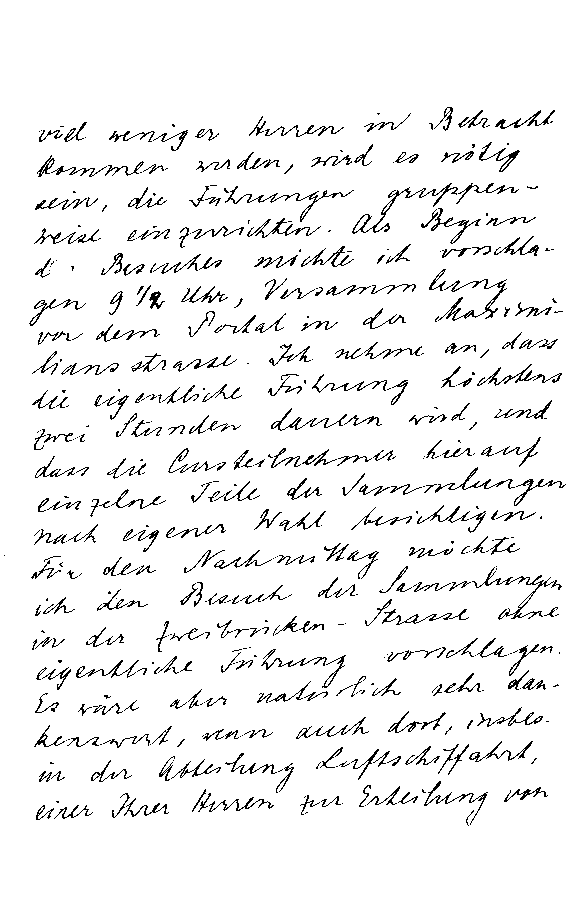 viel weniger Herren in Betracht
kommen werden, wird es nötig
sein, die Führungen gruppen-
weise einzurichten. Als Beginn
d. Besuches möchte ich vorschla-
gen 9 1/2 Uhr, Versammlung
vor dem Portal in der Maximi-
liansstrasse. Ich nehme an, dass
die eigentliche Führung höchstens
zwei Stunden dauern wird, und
dass die Cursteilnehmer hierauf
einzelne Teile der Sammlungen
nach eigener Wahl besichtigen.
Für den Nachmittag möchte
ich den Besuch der Sammlungen
in der Zweibrücken-Strasse ohne
eigentliche Führung vorschlagen.
Es wäre aber natürlich sehr dan-
kenswert, wenn auch dort, insbes.
in der Abteilung Luftschiffahrt,
einer Ihrer Herren zur Erteilung von